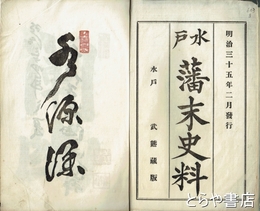 明治三十五年二月發行
水戸
藩末史料
水戸 武勝蔵版
水源深
とらや書店